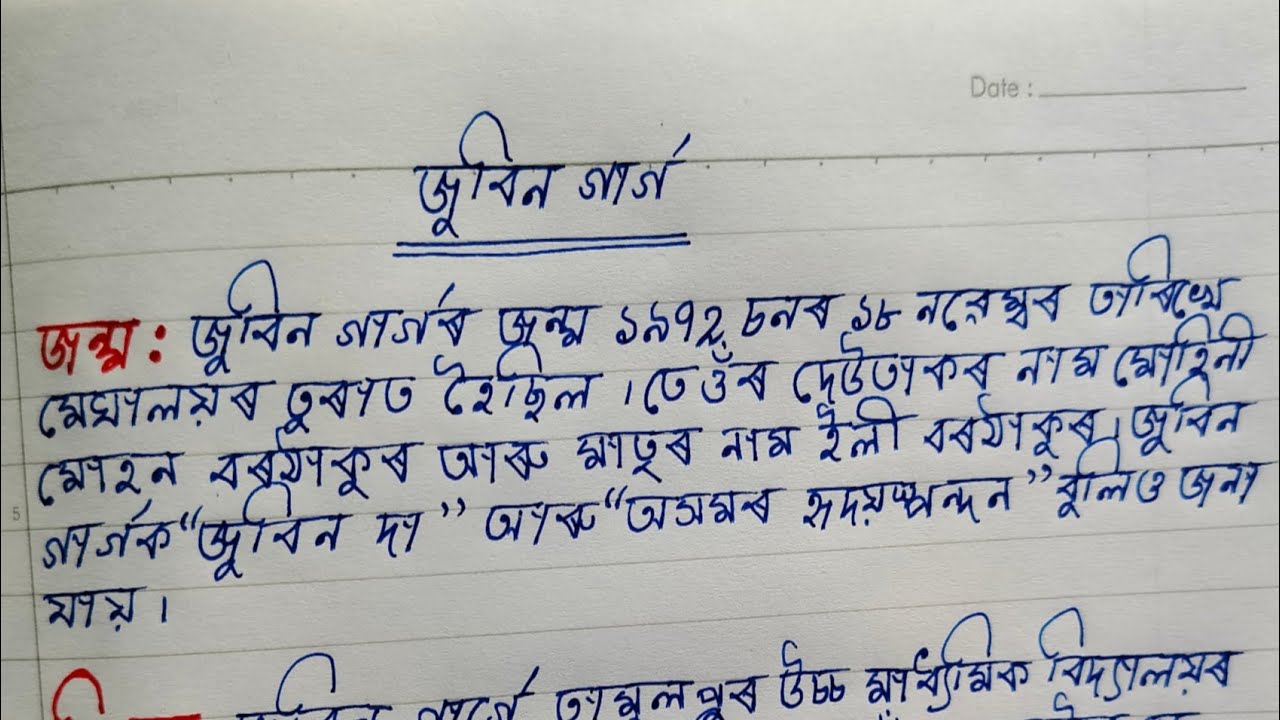 Date :
জুবিন গাৰ্গ
জন্ম : জুবিন গাৰ্গৰ জন্ম ১৯৭২ চনৰ ১৮ নৱেম্বৰ তাৰিখে
মেঘালয়ৰ তুৰাত হৈছিল । তেওঁৰ দেউতাকৰ নাম মোহিনী
মোহন বৰঠাকুৰ আৰু মাতৃৰ নাম ইলী বৰঠাকুৰ। জুবিন
5
গাৰ্গক “জুবিন দা” আৰু “অসমৰ হৃদয়স্পন্দন” বুলিও জনা
যায় ।
গাৰ্গে তামুলপুৰ উচ্চ মাধ্যমিক বিদ্যালয়ৰ